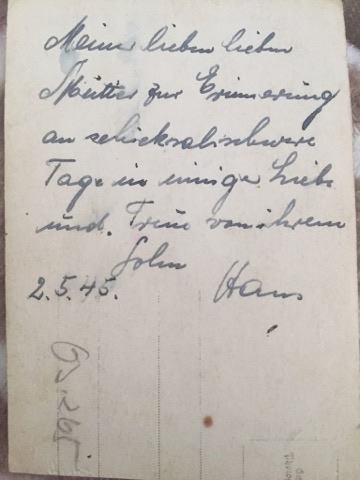 Meiner lieben lieben
Mutter zur Erinnerung
an schicksalsschwere
Tage in einiger Liebe
und Treue von ihrem
Sohn
2.5.45. Hans